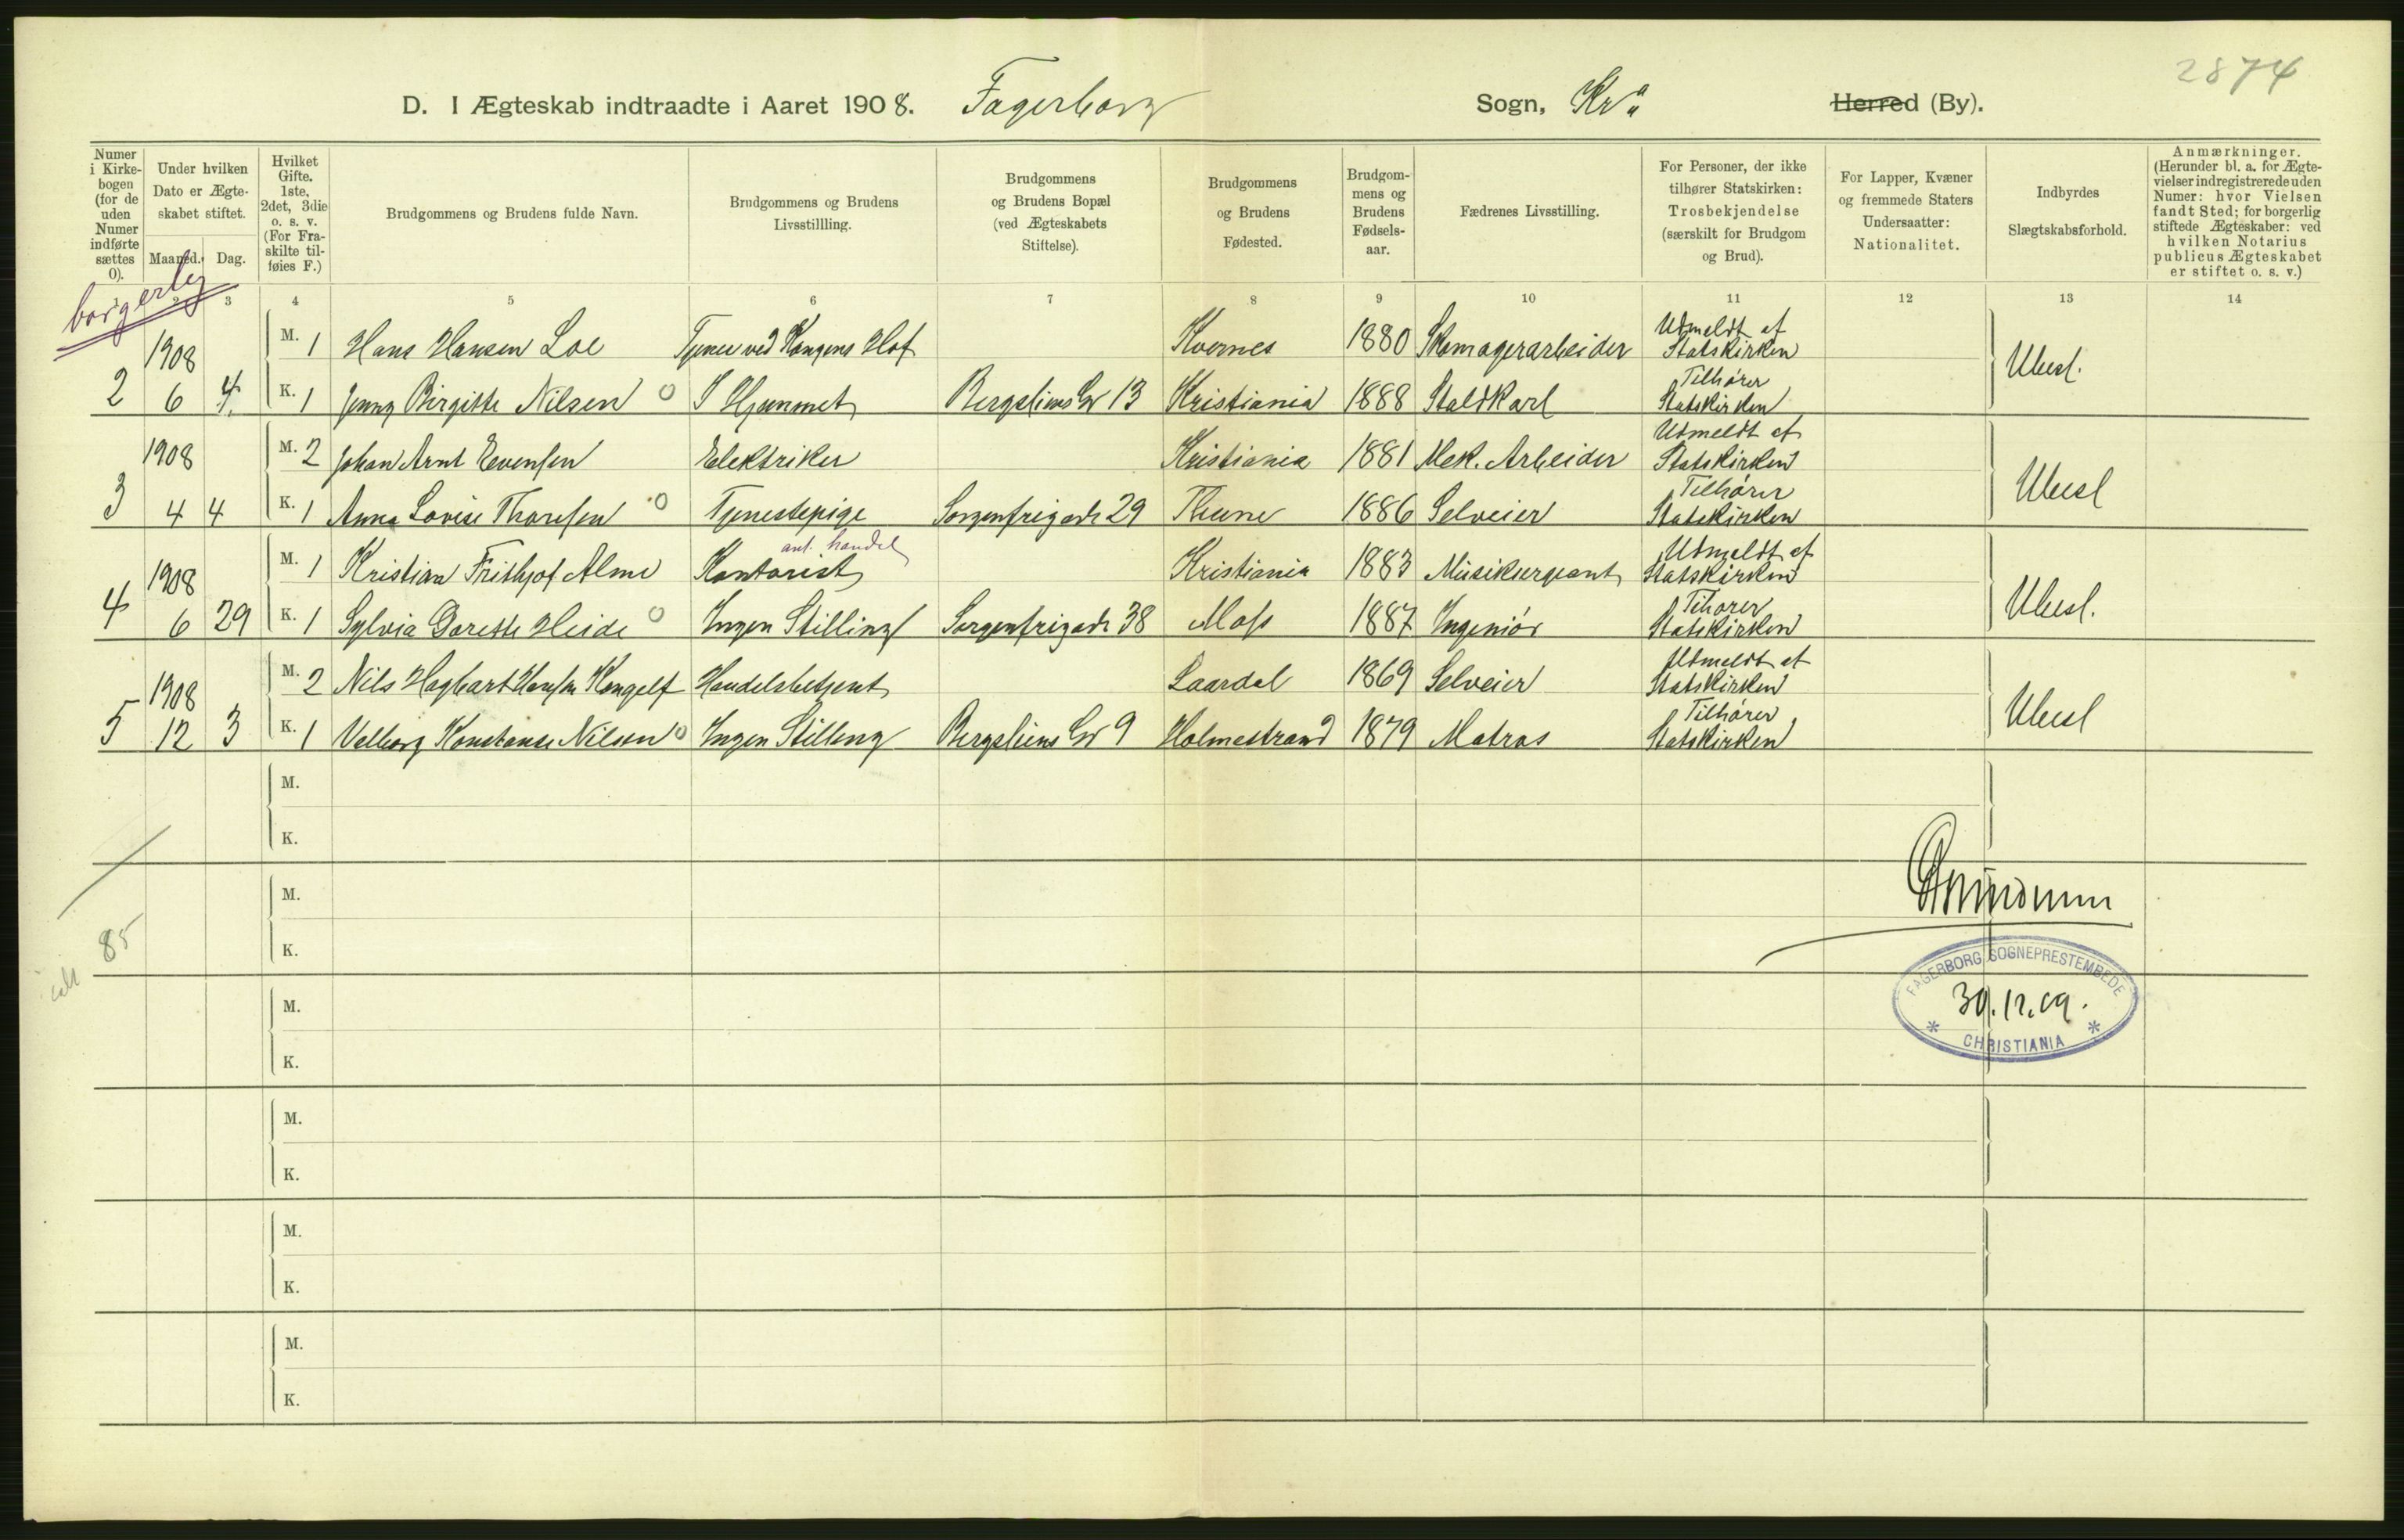 2874
D. I Ægteskab indtraadte i Aaret 1908. Fagerborg Sogn, Kra Herred (By).
Numer i Kirkebogen (for de uden Numer indførte sættes 0).
Under hvilken Dato er Ægteskabet stiftet.
Maaned. Dag.
Hvilket Gifte. 1ste, 2det, 3die o. s. v. (For Fraskilte tilføies F.)
Brudgommens og Brudens fulde Navn.
Brudgommens og Brudens Livsstillling.
Brudgommens og Brudens Bopæl (ved Ægteskabets Stiftelse).
Brudgommens og Brudens Fødested.
Brudgommens og Brudens Fødselsaar.
Fædrenes Livsstilling.
For Personer, der ikke tilhører Statskirken: Trosbekjendelse (særskilt for Brudgom og Brud).
For Lapper, Kvæner og fremmede Staters Undersaatter: Nationalitet.
Indbyrdes Slægtskabsforhold.
Anmærkninger. (Herunder bl. a. for Ægtevielser indregistrerede uden Numer: hvor Vielsen fandt Sted; for borgerlig stiftede Ægteskaber: ved hvilken Notarius publicus Ægteskabet er stiftet o. s. v.)
1 2 3 4 5 6 7 8 9 10 11 12 13 14
borgerlig
1908 M. 1 Hans Hansen Loe Tjener ved Kongens Hof Kvernes 1880 Skomagerarbeider Udmeldt af Statskirken
2 6 4. K. 1 Jenny Birgitte Nilsen o I Hjemmet Bergsliens Gr 13 Kristiania 1888 Staldkarl Tilhører Statskirken Ubesl.
1908 M. 2 Johan Arnt Evensen Elektriker Kristiania 1881 Mek. Arbeider Udmeldt af Statskirken
3 4 4 K. 1 Anna Lovise Thoresen o Tjenestepige Sorgenfrigade 29 1886 Selveier Tilhører Statskirken Ubesl
1908 M. 1 Kristian Frithjof Alme Kontorist ant. handel Kristiania 1883 Musiksergeant Udmeldt af Statskirken
4 6 29 K. 1 Sylvia Dorette Heide o Ingen Stilling Sorgenfrigade 38 Moss 1887 Ingeniør Tihører Statskirken Ubesl.
1908 M. 2 Nils Hagbart Hansen Kongelf Handelsbetjent Laardal 1869 Selveier Udmeldt af Statskirken
5 12 3 K. 1 Valborg Konstanse Nilsen o Ingen Stilling Bergsliens Gr 9 Holmestrand 1879 Matros Tilhører Statskirken Ubesl
M.
K.
M.
K.
85
M.
K.
FAGERBORG SOGNEPRESTEMBEDE
30.12.09.
CHRISTIANIA
M.
K.
M.
K.
M.
K.